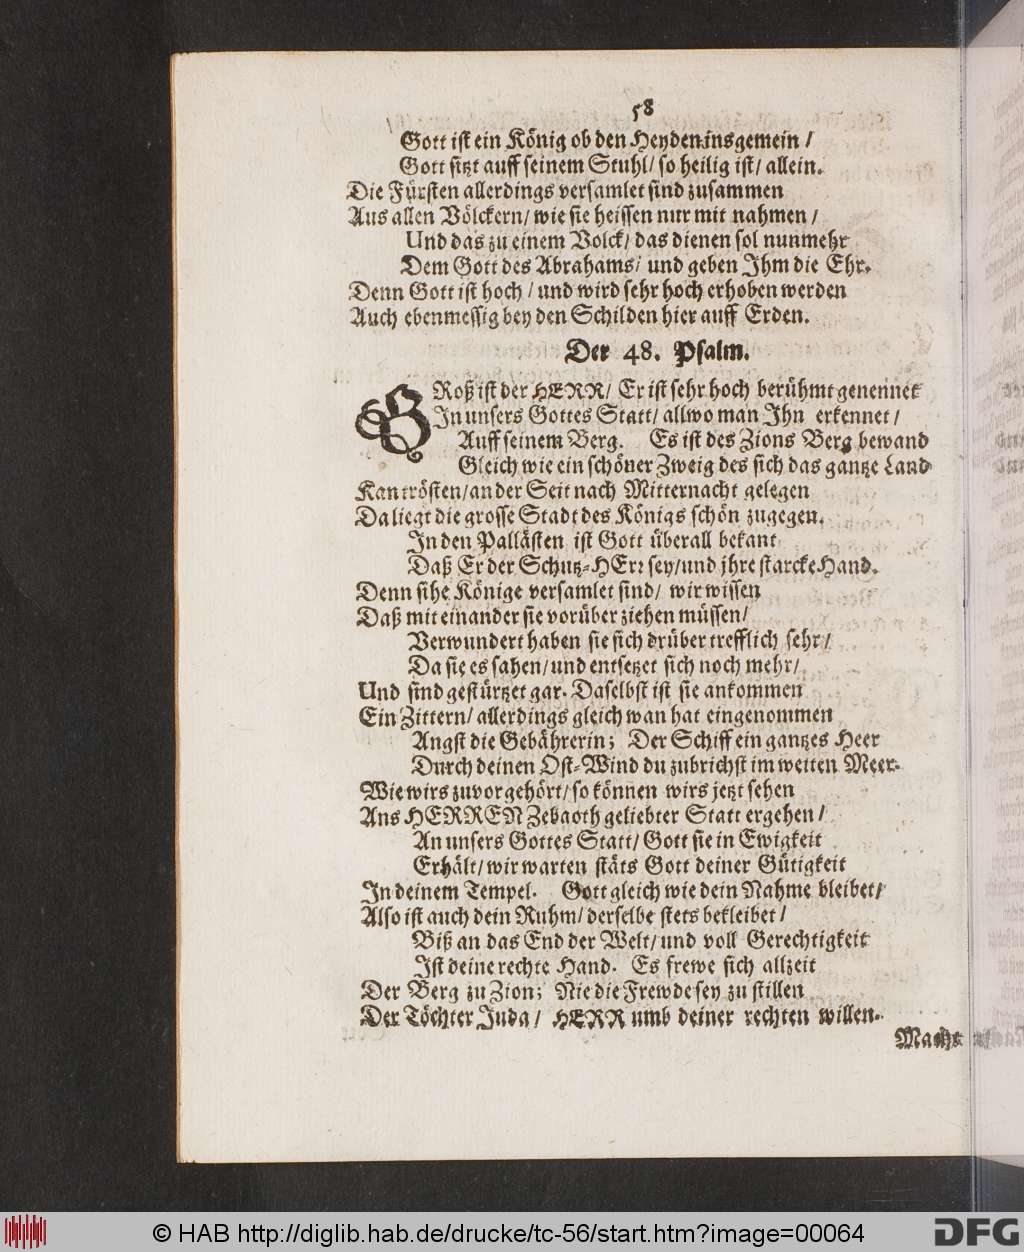 58
Gott ist ein König ob den Heyden insgemein /
Gott sitzt auff seinem Stuhl / so heilig ist / allein.
Die Fürsten allerdings versamlet sind zusammen
Aus allen Völckern / wie sie heissen nur mit nahmen /
Und das zu einem Volck / das dienen sol nunmehr
Dem Gott des Abrahams / und geben Ihm die Ehr.
Denn Gott ist hoch / und wird sehr hoch erhoben werden
Auch ebenmessig bey den Schilden hier auff Erden.
Der 48. Psalm.
GRoß ist der HERR / Er ist sehr hoch berühmt genennet
In unsers Gottes Statt / allwo man Ihn erkennet /
Auff seinem Berg. Es ist des Zions Berg bewand
Gleich wie ein schöner Zweig des sich das gantze Land
Kan trösten / an der Seit nach Mitternacht gelegen
Da liegt die grosse Stadt des Königs schön zugegen.
In den Pallästen ist Gott überall bekant
Daß Er der Schutz-HErr sey / und jhre starcke Hand.
Denn sihe Könige versamlet sind / wir wissen
Daß mit einander sie vorüber ziehen müssen /
Verwundert haben sie sich drüber trefflich sehr /
Da sie es sahen / und entsetzet sich noch mehr /
Und sind gestürtzet gar. Daselbst ist sie ankommen
Ein Zittern / allerdings gleich wan hat eingenommen
Angst die Gebährerin; Der Schiff ein gantzes Heer
Durch deinen Ost-Wind du zubrichst im weiten Meer.
Wie wirs zuvor gehört / so können wirs jetzt sehen
Ans HERREN Zebaoth geliebter Statt ergehen /
An unsers Gottes Statt / Gott sie in Ewigkeit
Erhält / wir warten stäts Gott deiner Gütigkeit
In deinem Tempel. Gott gleich wie dein Nahme bleibet /
Also ist auch dein Ruhm / derselbe stets bekleibet /
Biß an das End der Welt / und voll Gerechtigkeit
Ist deine rechte Hand. Es frewe sich allzeit
Der Berg zu Zion; Nie die Frewde sey zu stillen
Der Töchter Juda / HERR umb deiner rechten willen.
Macht
© HAB http://diglib.hab.de/drucke/tc-56/start.htm?image=00064
DFG